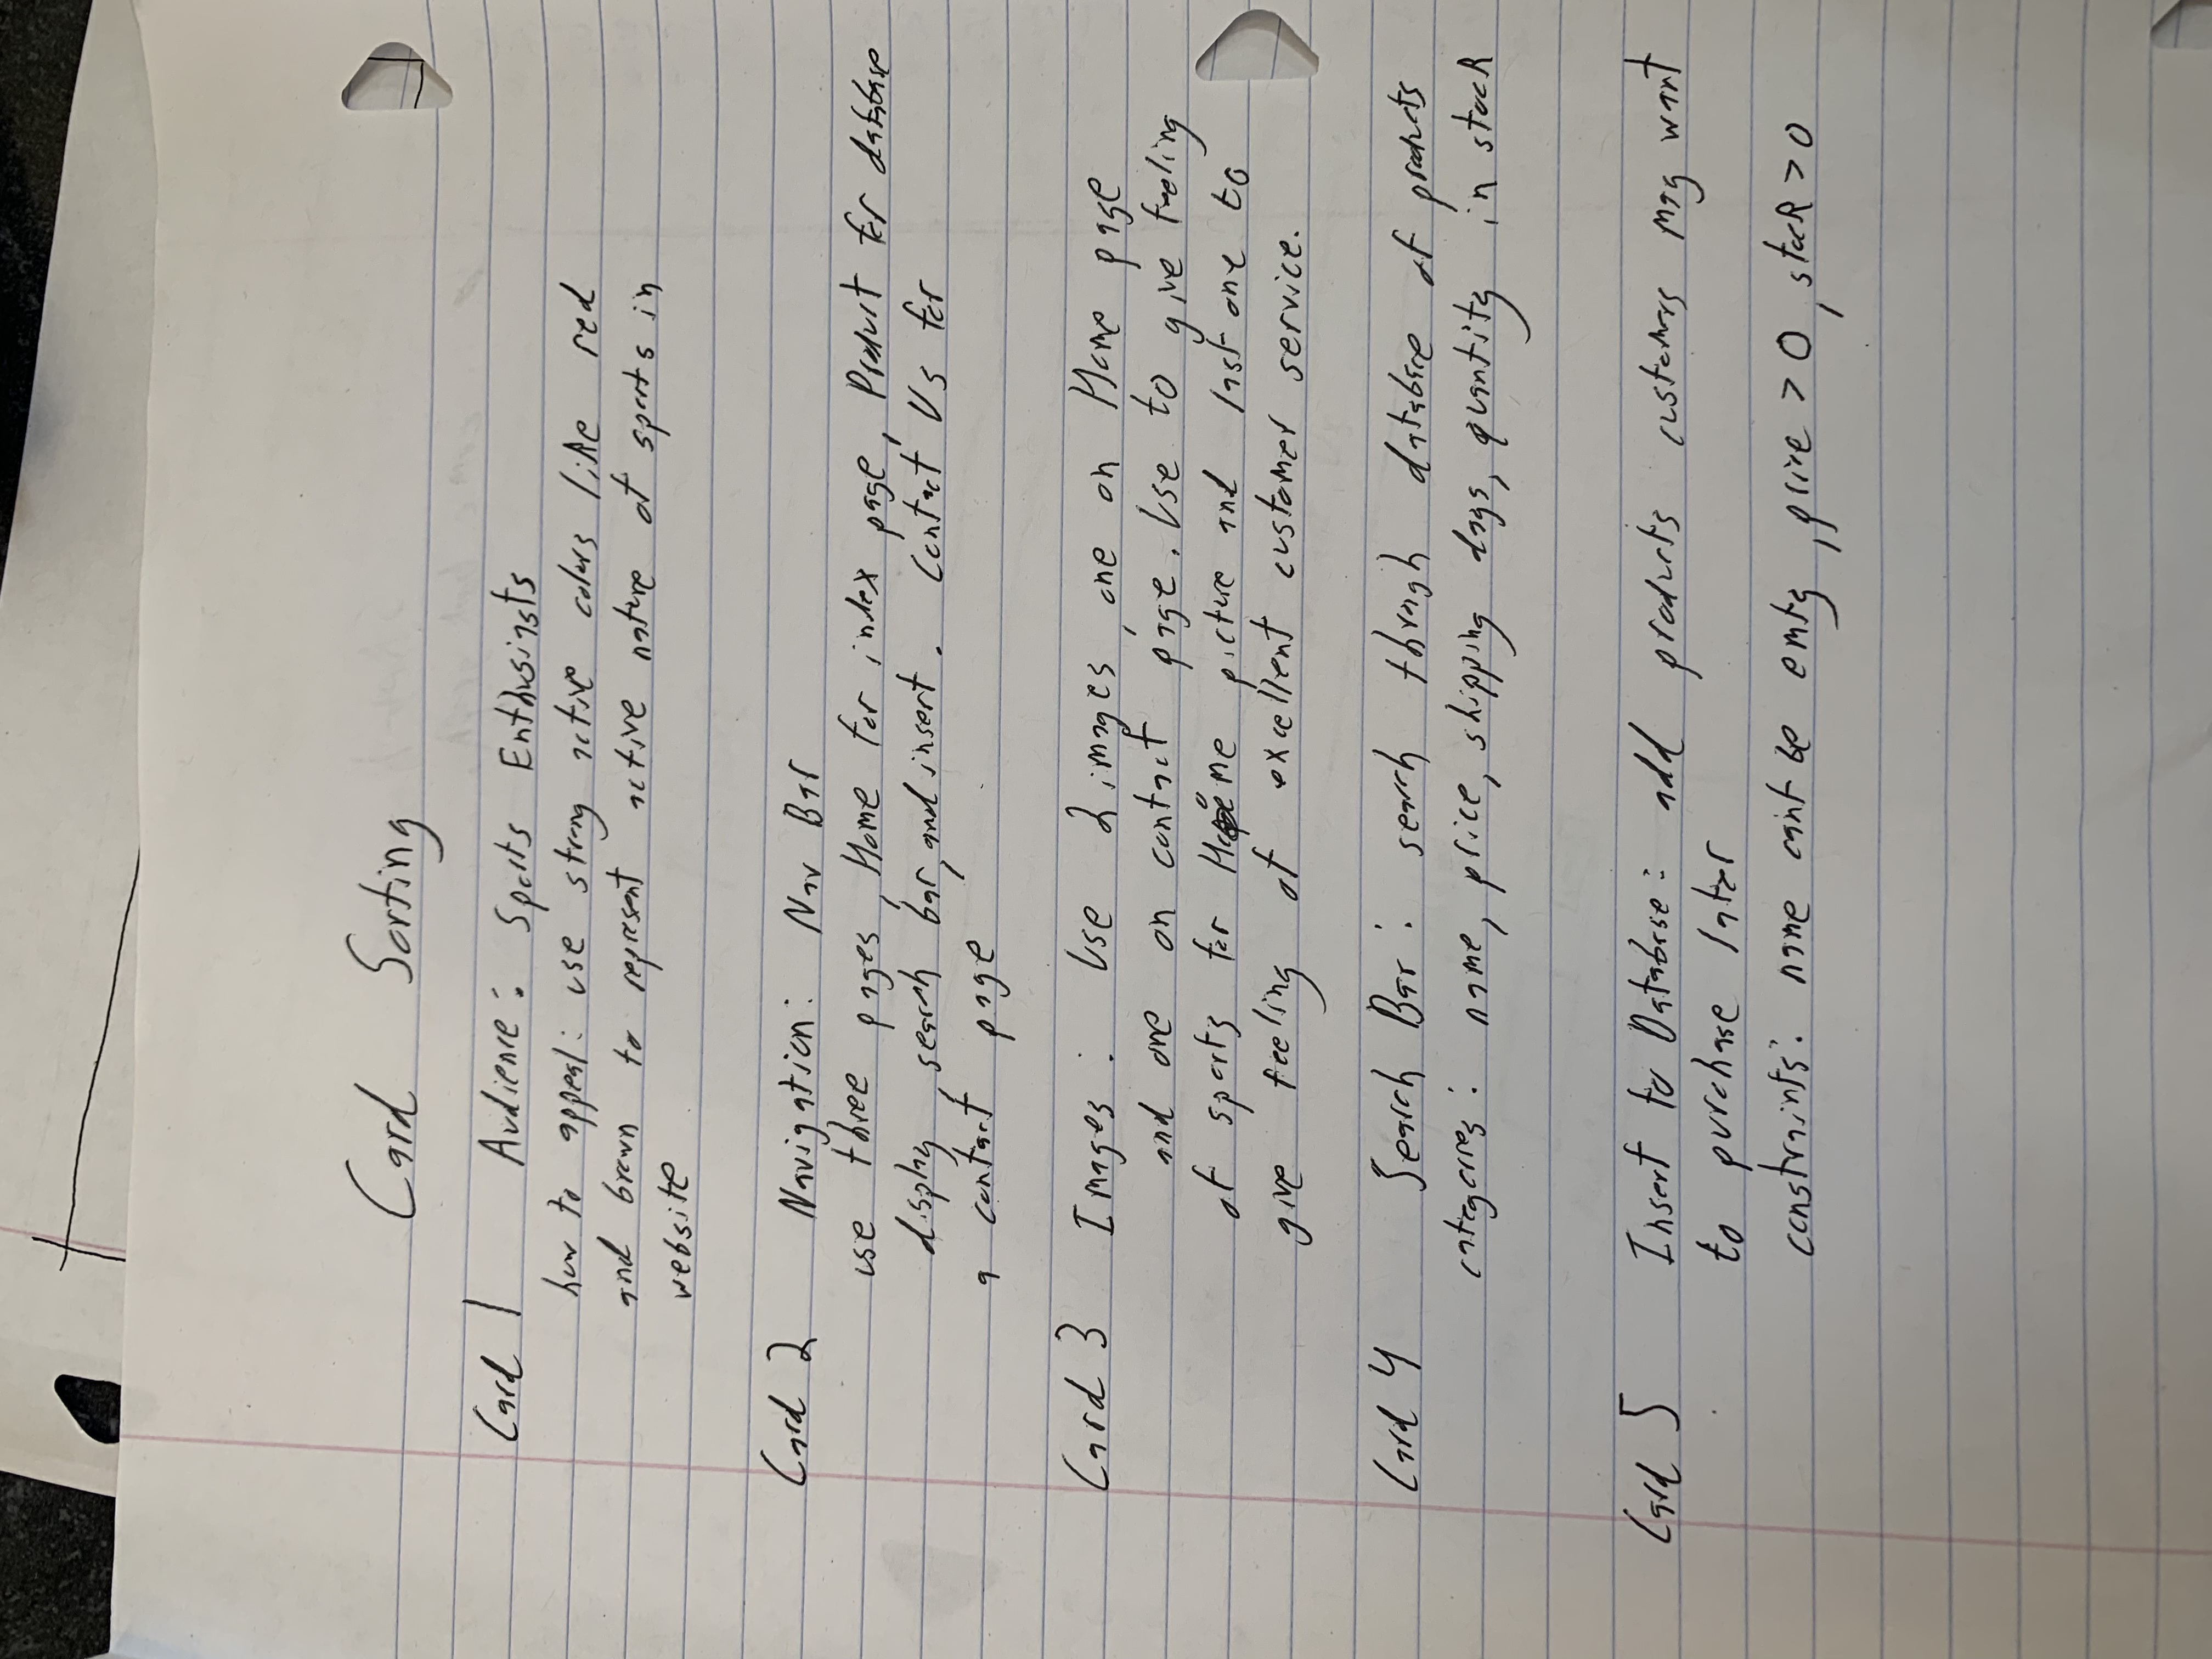 Card Sorting
Card 1 Audience: Sports Enthusiasts
how to appeal: use strong active colors like red
and brown to represent active nature of sports in
website
Card 2 Navigation: Nav Bar
use three pages, Home for index page, Product for database
display, search bar, and insert. Contact Us for
a contact page
Card 3 Images: Use 2 images, one on Home page
and one on contact page. Use to give feeling
of sports for Home picture and last one to
give feeling of excellent customer service.
Card 4 Search Bar: search through database of products
categories: name, price, shipping days, quantity in stock
Card 5 Insert to Database: add products customers may want
to purchase later
constraints: name cant be emty, price > 0, stock > 0